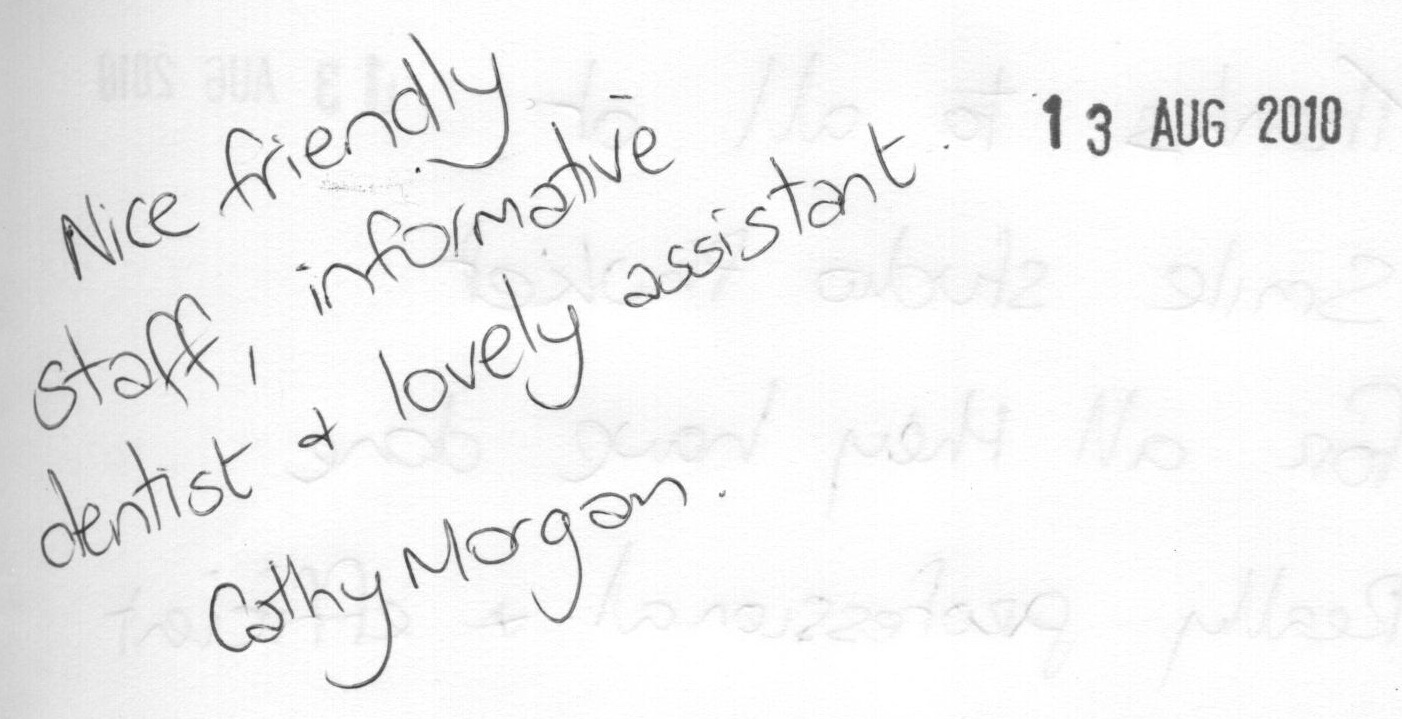 13 AUG 2010
Nice friendly
staff, informative
dentist & lovely assistant.
Cathy Morgan.